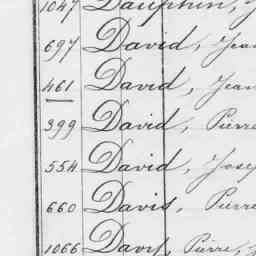 1047 Dauphin, J
697 David, Jean
461 David, Jean
399 David, Pierre
554 David, Jose
660 Davis, Pierre
1066 Davy, Pierre, J